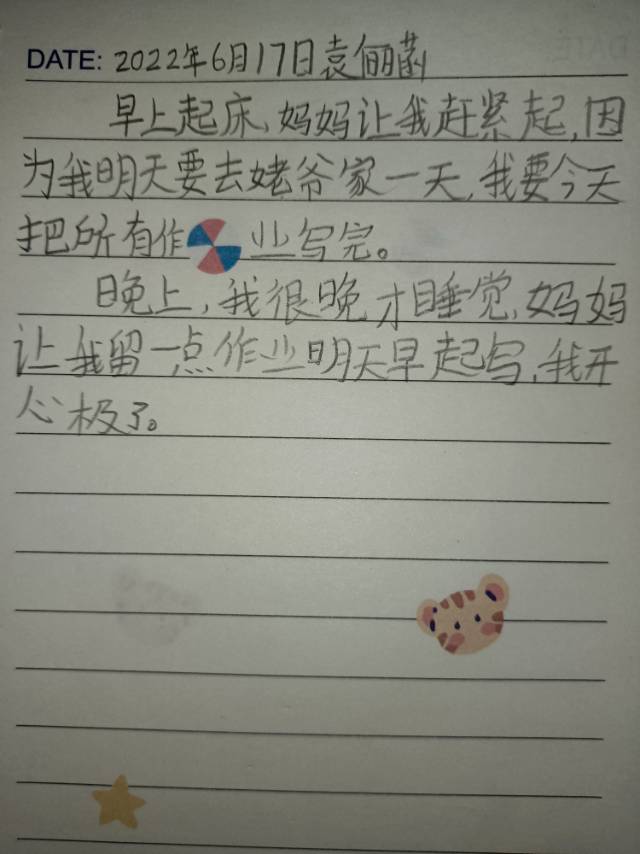 DATE: 2022年6月17日袁俪菡
早上起床,妈妈让我赶紧起,因
为我明天要去姥爷家一天,我要今天
把所有作业写完。
晚上,我很晚才睡觉,妈妈
让我留一点作业明天早起写,我开
心极了。